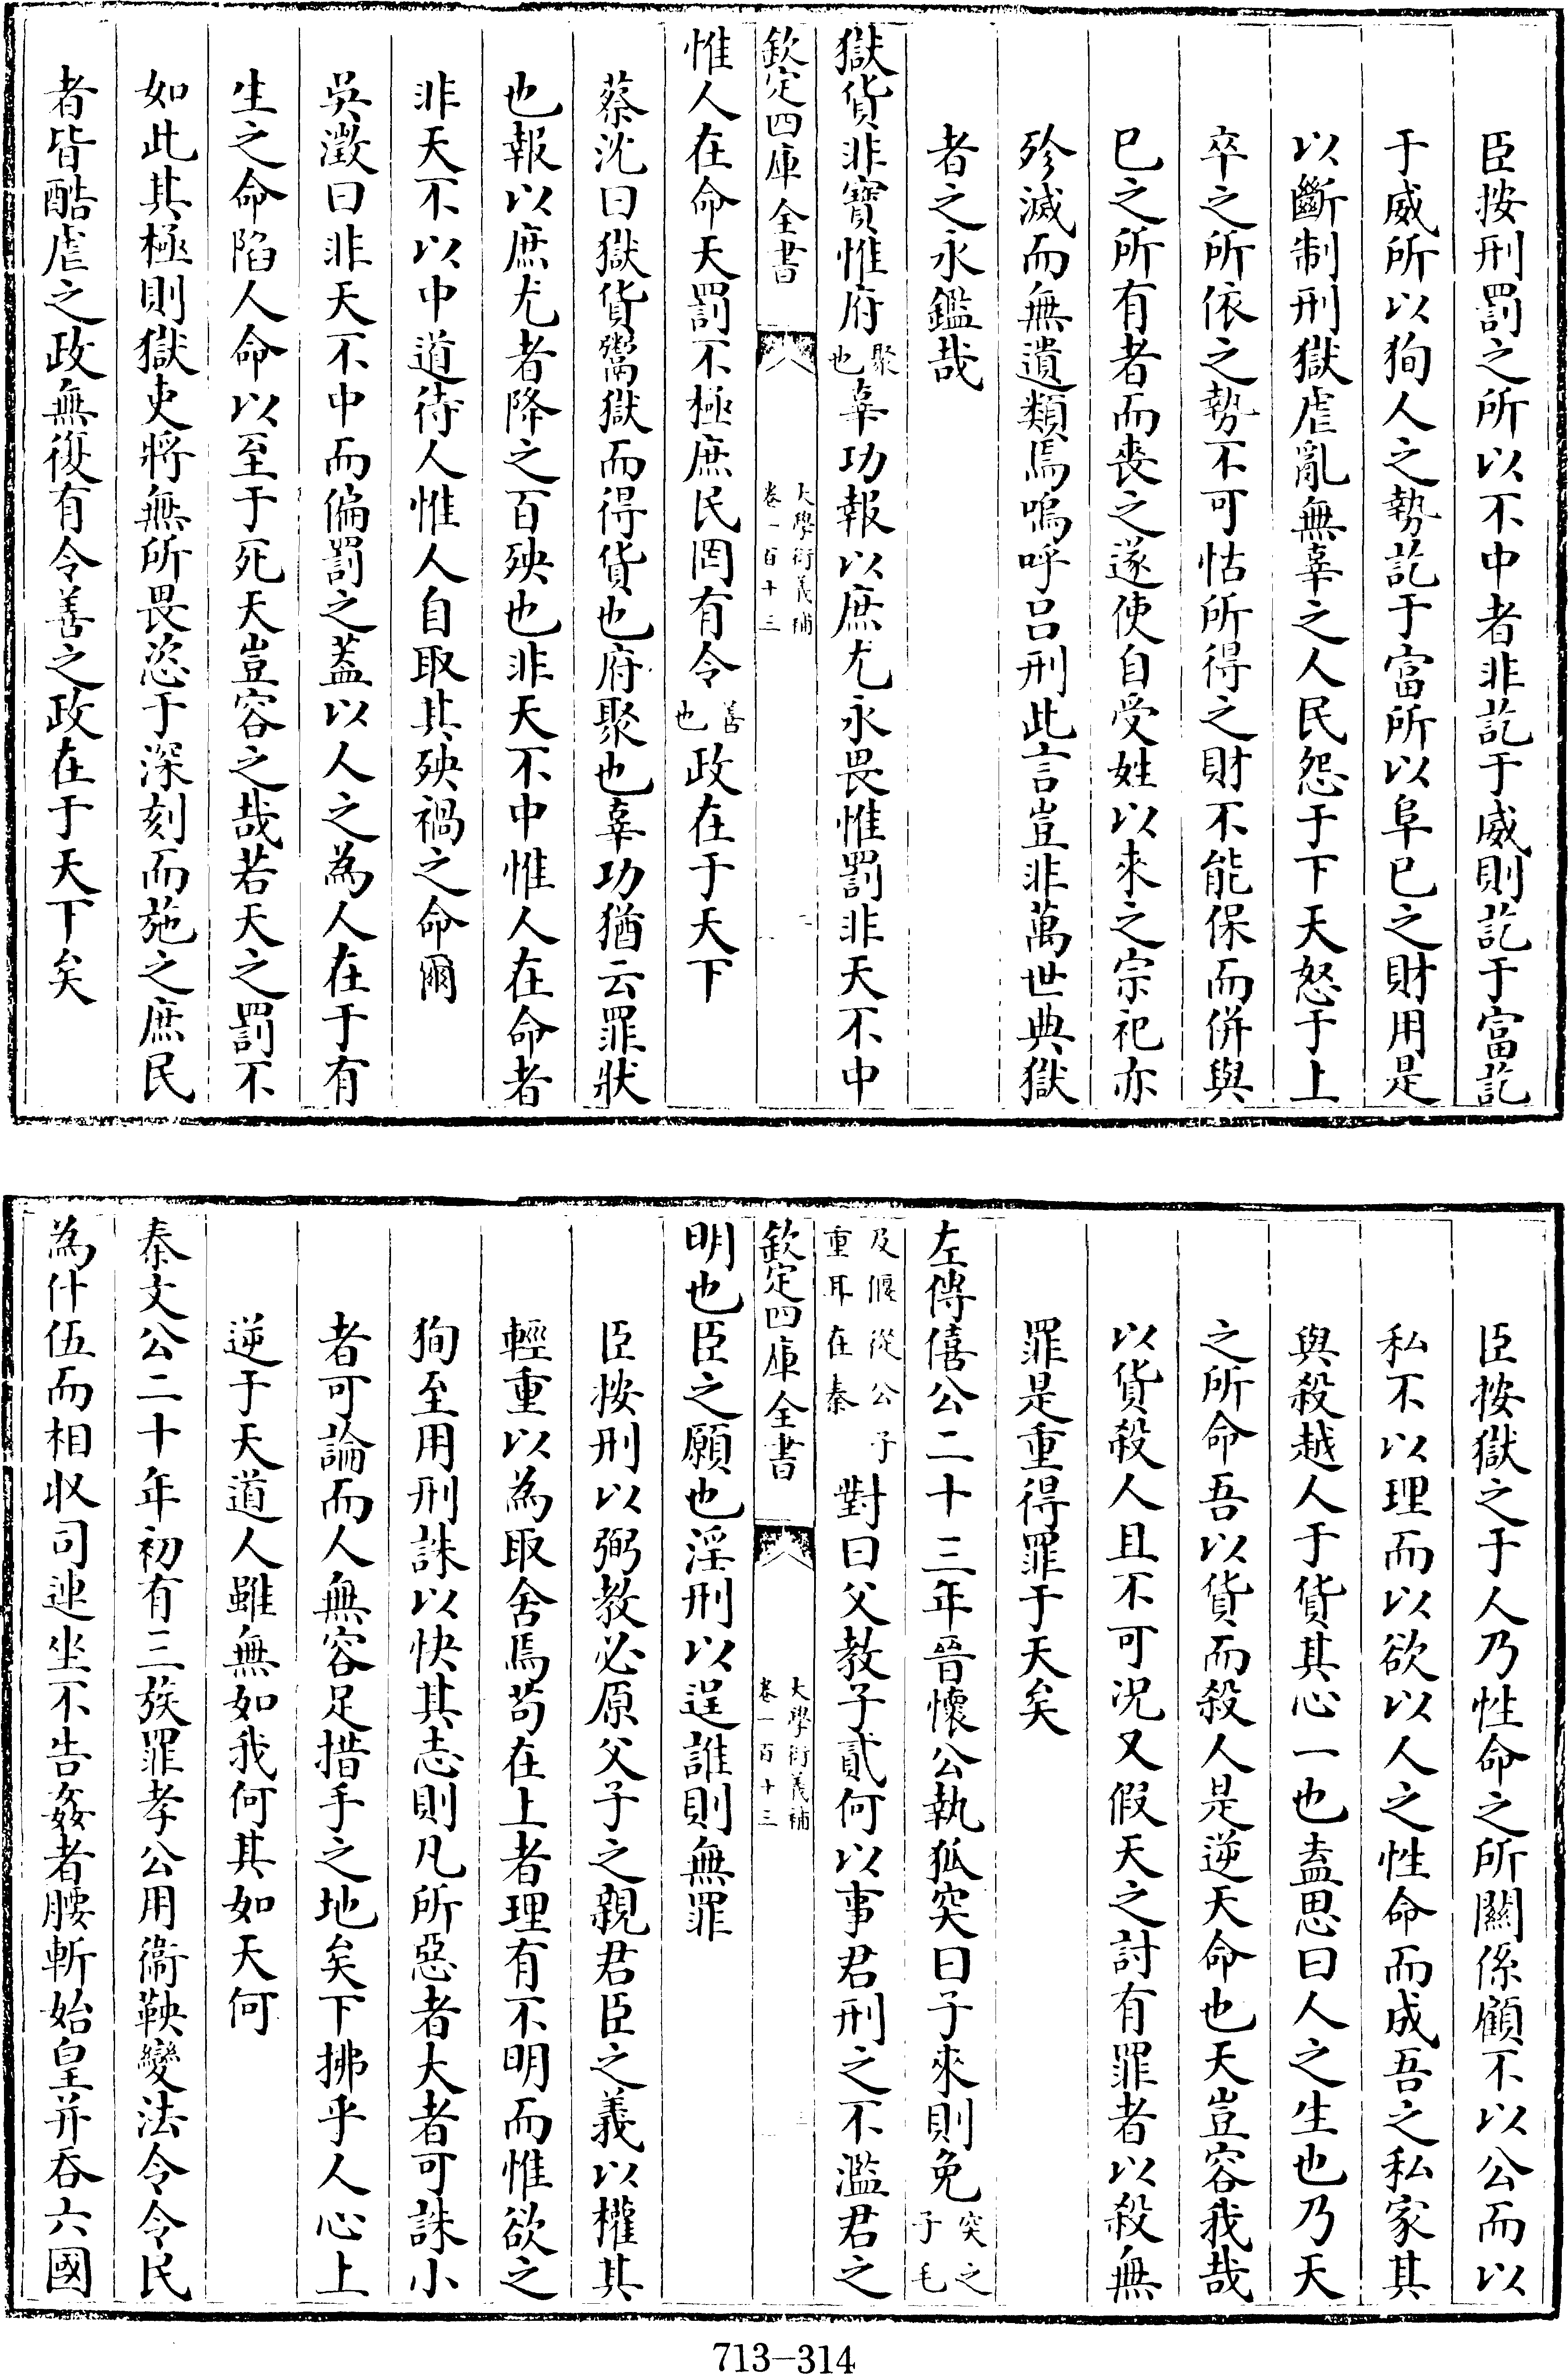 臣按刑罰之所以不中者非訖于威則訖于富訖
于威所以狥人之勢訖于富所以阜已之財用是
以斷制刑獄虐亂無辜之人民怨于下天怒于上
卒之所依之勢不可怙所得之財不能保而併與
已之所有者而喪之遂使自受姓以來之宗祀亦
殄滅而無遺類焉嗚呼吕刑此言豈非萬世典獄
者之永鑑哉
獄貨非寶惟府聚也辜功報以庶尤永畏惟罰非天不中
欽定四庫全書 大學衍義補 卷一百十三 二
惟人在命天罰不極庶民罔有令善也政在于天下
蔡沈曰獄貨鬻獄而得貨也府聚也辜功猶云罪狀
也報以庶尤者降之百殃也非天不中惟人在命者
非天不以中道待人惟人自取其殃禍之命爾
吳澂曰非天不中而偏罰之蓋以人之為人在于有
生之命陷人命以至于死天豈容之哉若天之罰不
如此其極則獄吏將無所畏恣于深刻而施之庶民
者皆酷虐之政無復有令善之政在于天下矣
臣按獄之于人乃性命之所關係顧不以公而以
私不以理而以欲以人之性命而成吾之私家其
與殺越人于貨其心一也盍思曰人之生也乃天
之所命吾以貨而殺人是逆天命也天豈容我哉
以貨殺人且不可况又假天之討有罪者以殺無
罪是重得罪于天矣
左傳僖公二十三年晉懷公執狐突曰子來則免突之子毛
及偃從公子重耳在秦對曰父教子貳何以事君刑之不濫君之
欽定四庫全書 大學衍義補 卷一百十三 三
明也臣之願也淫刑以逞誰則無罪
臣按刑以弼教必原父子之親君臣之義以權其
輕重以為取舍焉苟在上者理有不明而惟欲之
狥至用刑誅以快其志則凡所惡者大者可誅小
者可論而人無容足措手之地矣下拂乎人心上
逆于天道人雖無如我何其如天何
秦文公二十年初有三族罪孝公用衞鞅變法令令民
為什伍而相收司連坐不告姦者腰斬始皇并吞六國
713-314